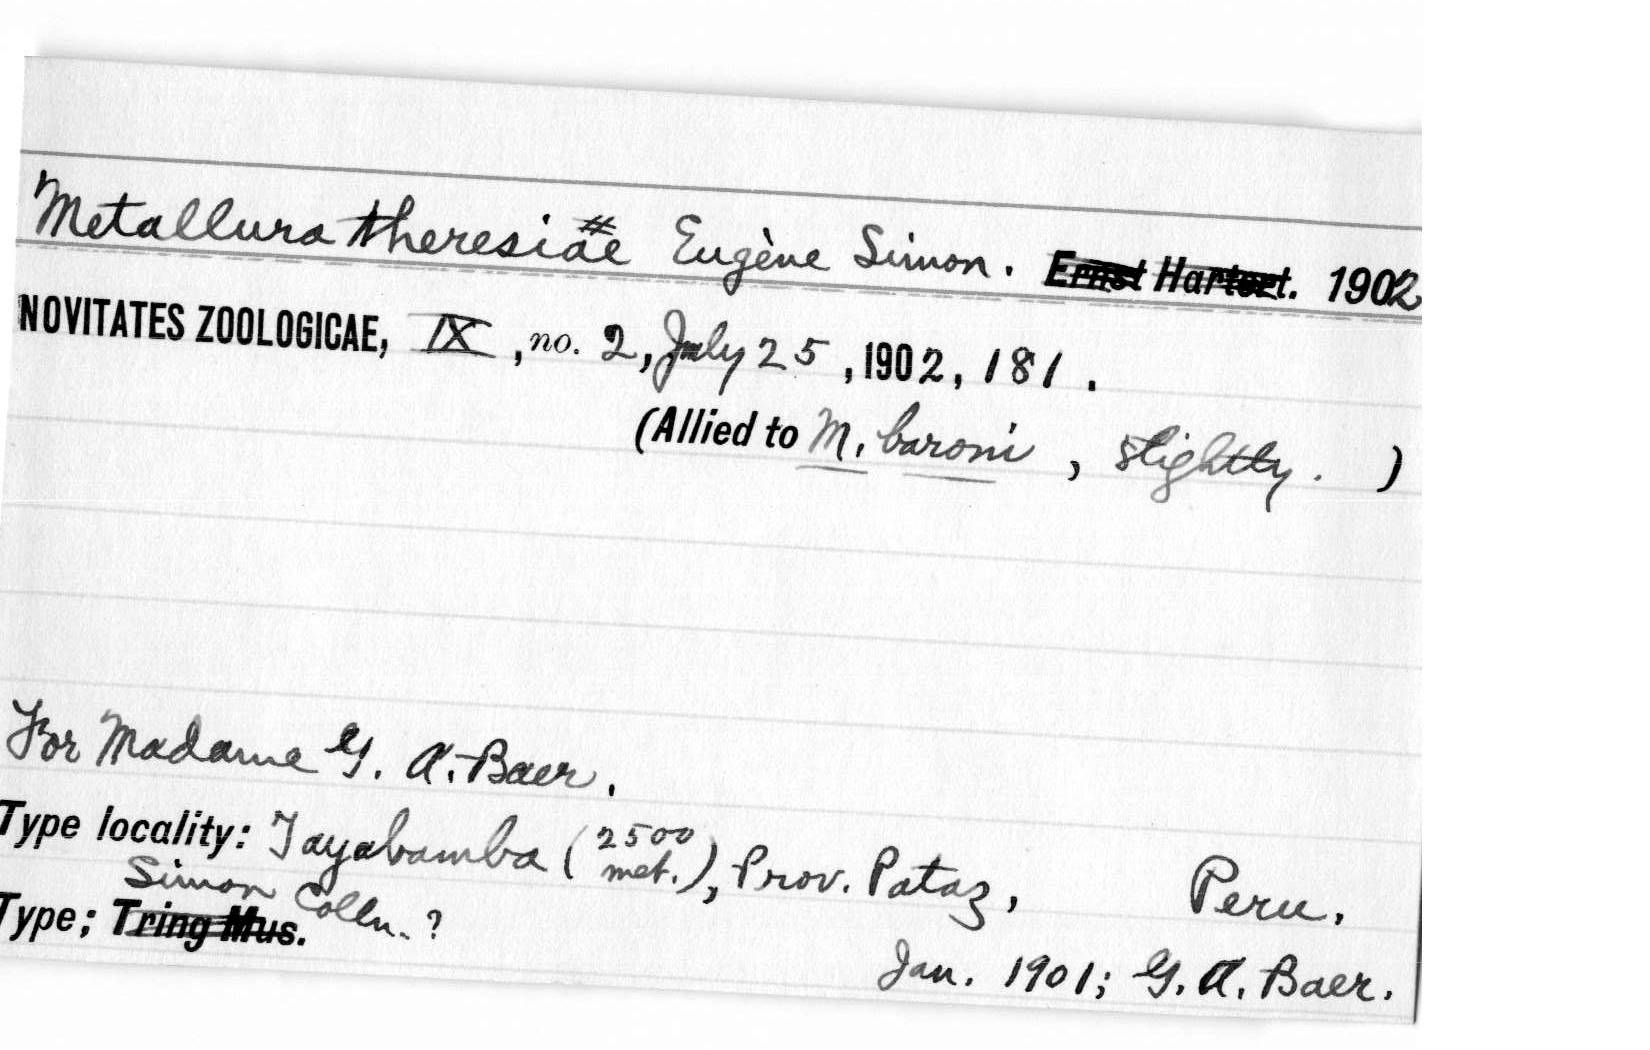 Metallura theresiae # Eugène Simon. Ernst Hartert. 1902
NOVITATES ZOOLOGICAE, IX, no. 2, July 25, 1902, 181.
(Allied to M. baroni, slightly. )
For Madame G. A. Baer.
Type locality: Tayabamba (2500 met.), Prov. Pataz, Peru.
Simon Colln. ?
Type; Tring Mus.
Jan. 1901; G. A. Baer.